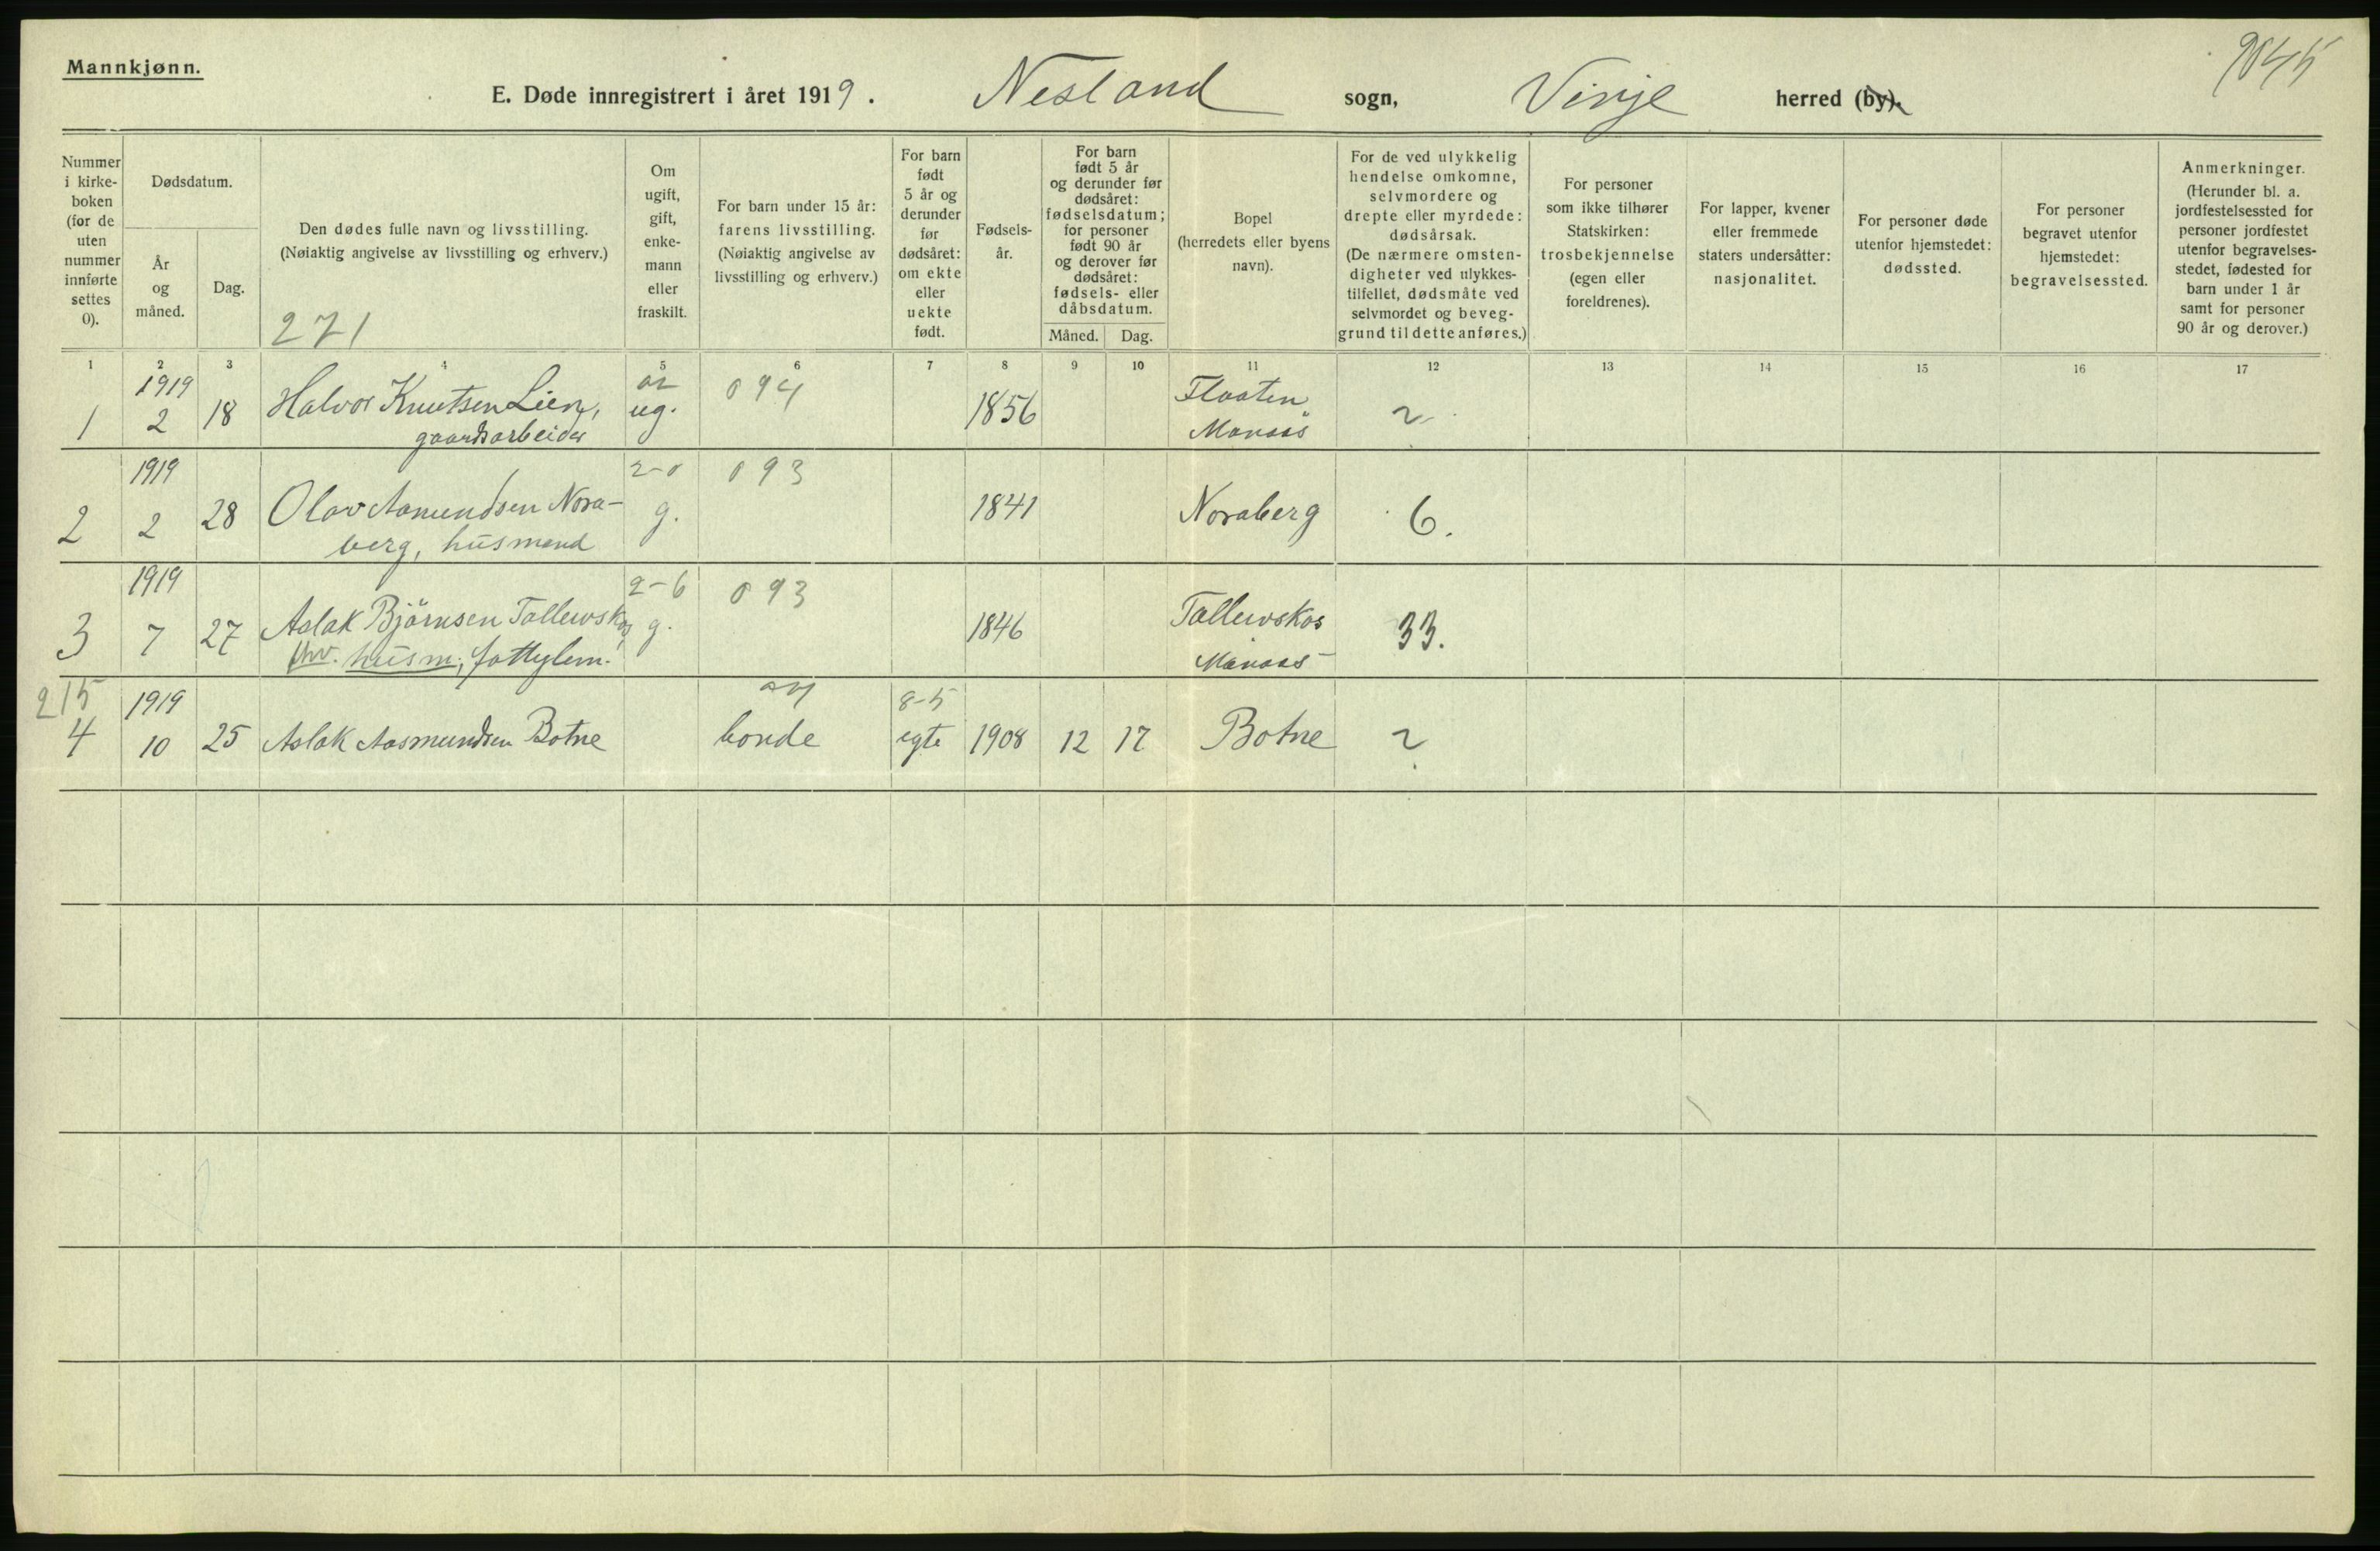 Mannkjønn.
E. Døde innregistrert i året 1919. Nesland sogn, Vinje herred (by).
Nummer i kirke-boken (for de uten nummer innførte settes 0).
Dødsdatum.
År og måned.
Dag.
Den dødes fulle navn og livsstilling.
(Nøiaktig angivelse av livsstilling og erhverv.)
271
Om ugift, gift, enke-mann eller fraskilt.
For barn under 15 år: farens livsstilling. (Nøiaktig angivelse av livsstilling og erhverv.)
For barn født 5 år og derunder før dødsåret: om ekte eller uekte født.
Fødsels-år.
For barn født 5 år og derunder før dødsåret: fødselsdatum; for personer født 90 år og derover før dødsåret: fødsels- eller dåbsdatum.
Måned.
Dag.
Bopel (herredets eller byens navn).
For de ved ulykkelig hendelse omkomne, selvmordere og drepte eller myrdede: dødsårsak. (De nærmere omsten-digheter ved ulykkes-tilfellet, dødsmåte ved selvmordet og beveg-grund til dette anføres.)
For personer som ikke tilhører Statskirken: trosbekjennelse (egen eller foreldrenes).
For lapper, kvener eller fremmede staters undersåtter: nasjonalitet.
For personer døde utenfor hjemstedet: dødssted.
For personer begravet utenfor hjemstedet: begravelsessted.
Anmerkninger. (Herunder bl. a. jordfestelsessted for personer jordfestet utenfor begravelses-stedet, fødested for barn under 1 år samt for personer 90 år og derover.)
1 2 3 4 5 6 7 8 9 10 11 12 13 14 15 16 17
1919 094 Flaaten
1 2 18 Halvor Knutsen Lien, ug. 1856
gaardsarbeider Manaas
1919 2-0 093
2 2 28 Olav Aamundsen Nora- g. 1841 Noraberg 6.
berg, husmand
1919 2-6 093
3 7 27 Aslak Björnsen Tallevskos g. 1846 Tallevskos 33.
fhv. husm., fattiglem. Manaas
215 1919 8-5
4 10 25 Aslak Aasmundsen Botne bonde egte 1908 12 17 Botne